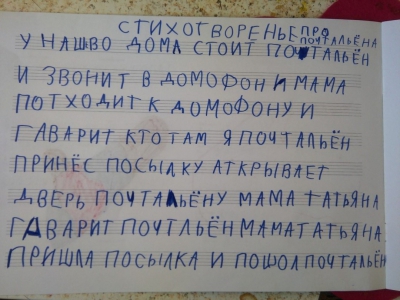 СТИХОТВОРЕНЬЕ ПРО ПОЧТАЛЬЁНА
У НАШВО ДОМА СТОИТ ПОЧТАЛЬЁН
И ЗВОНИТ В ДОМОФОН И МАМА
ПОТХОДИТ К ДОМОФОНУ И
ГАВАРИТ КТО ТАМ Я ПОЧТАЛЬЁН
ПРИНЁС ПОСЫЛКУ АТКРЫВАЕТ
ДВЕРЬ ПОЧТАЛЬЁНУ МАМА ТАТЬЯНА
ГАВАРИТ ПОЧТЛЬЁН МАМА ТАТЬЯНА
ПРИШЛА ПОСЫЛКА И ПОШОЛ ПОЧТАЛЬЁН